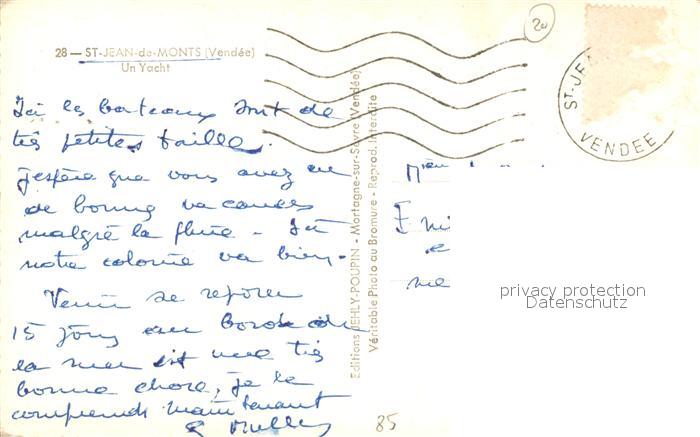 28 — ST-JEAN-de-MONTS (Vendée)
Un Yacht
Ici les bateaux sont de
très petites taille.
j'espère que vous avez eu
de bonnes vacances
malgré la pluie - Ici
notre colonie va bien -
Venir se reposer
15 jours au bord de
la mer est une très
bonne chose, je le
comprends maintenant
Editions JEHLY-POUPIN - Mortagne-sur-Sèvre (Vendée)
Véritable Photo au Bromure - Reprod. Interdite
20
ST-JEA
VENDEE
privacy protection
Datenschutz
85